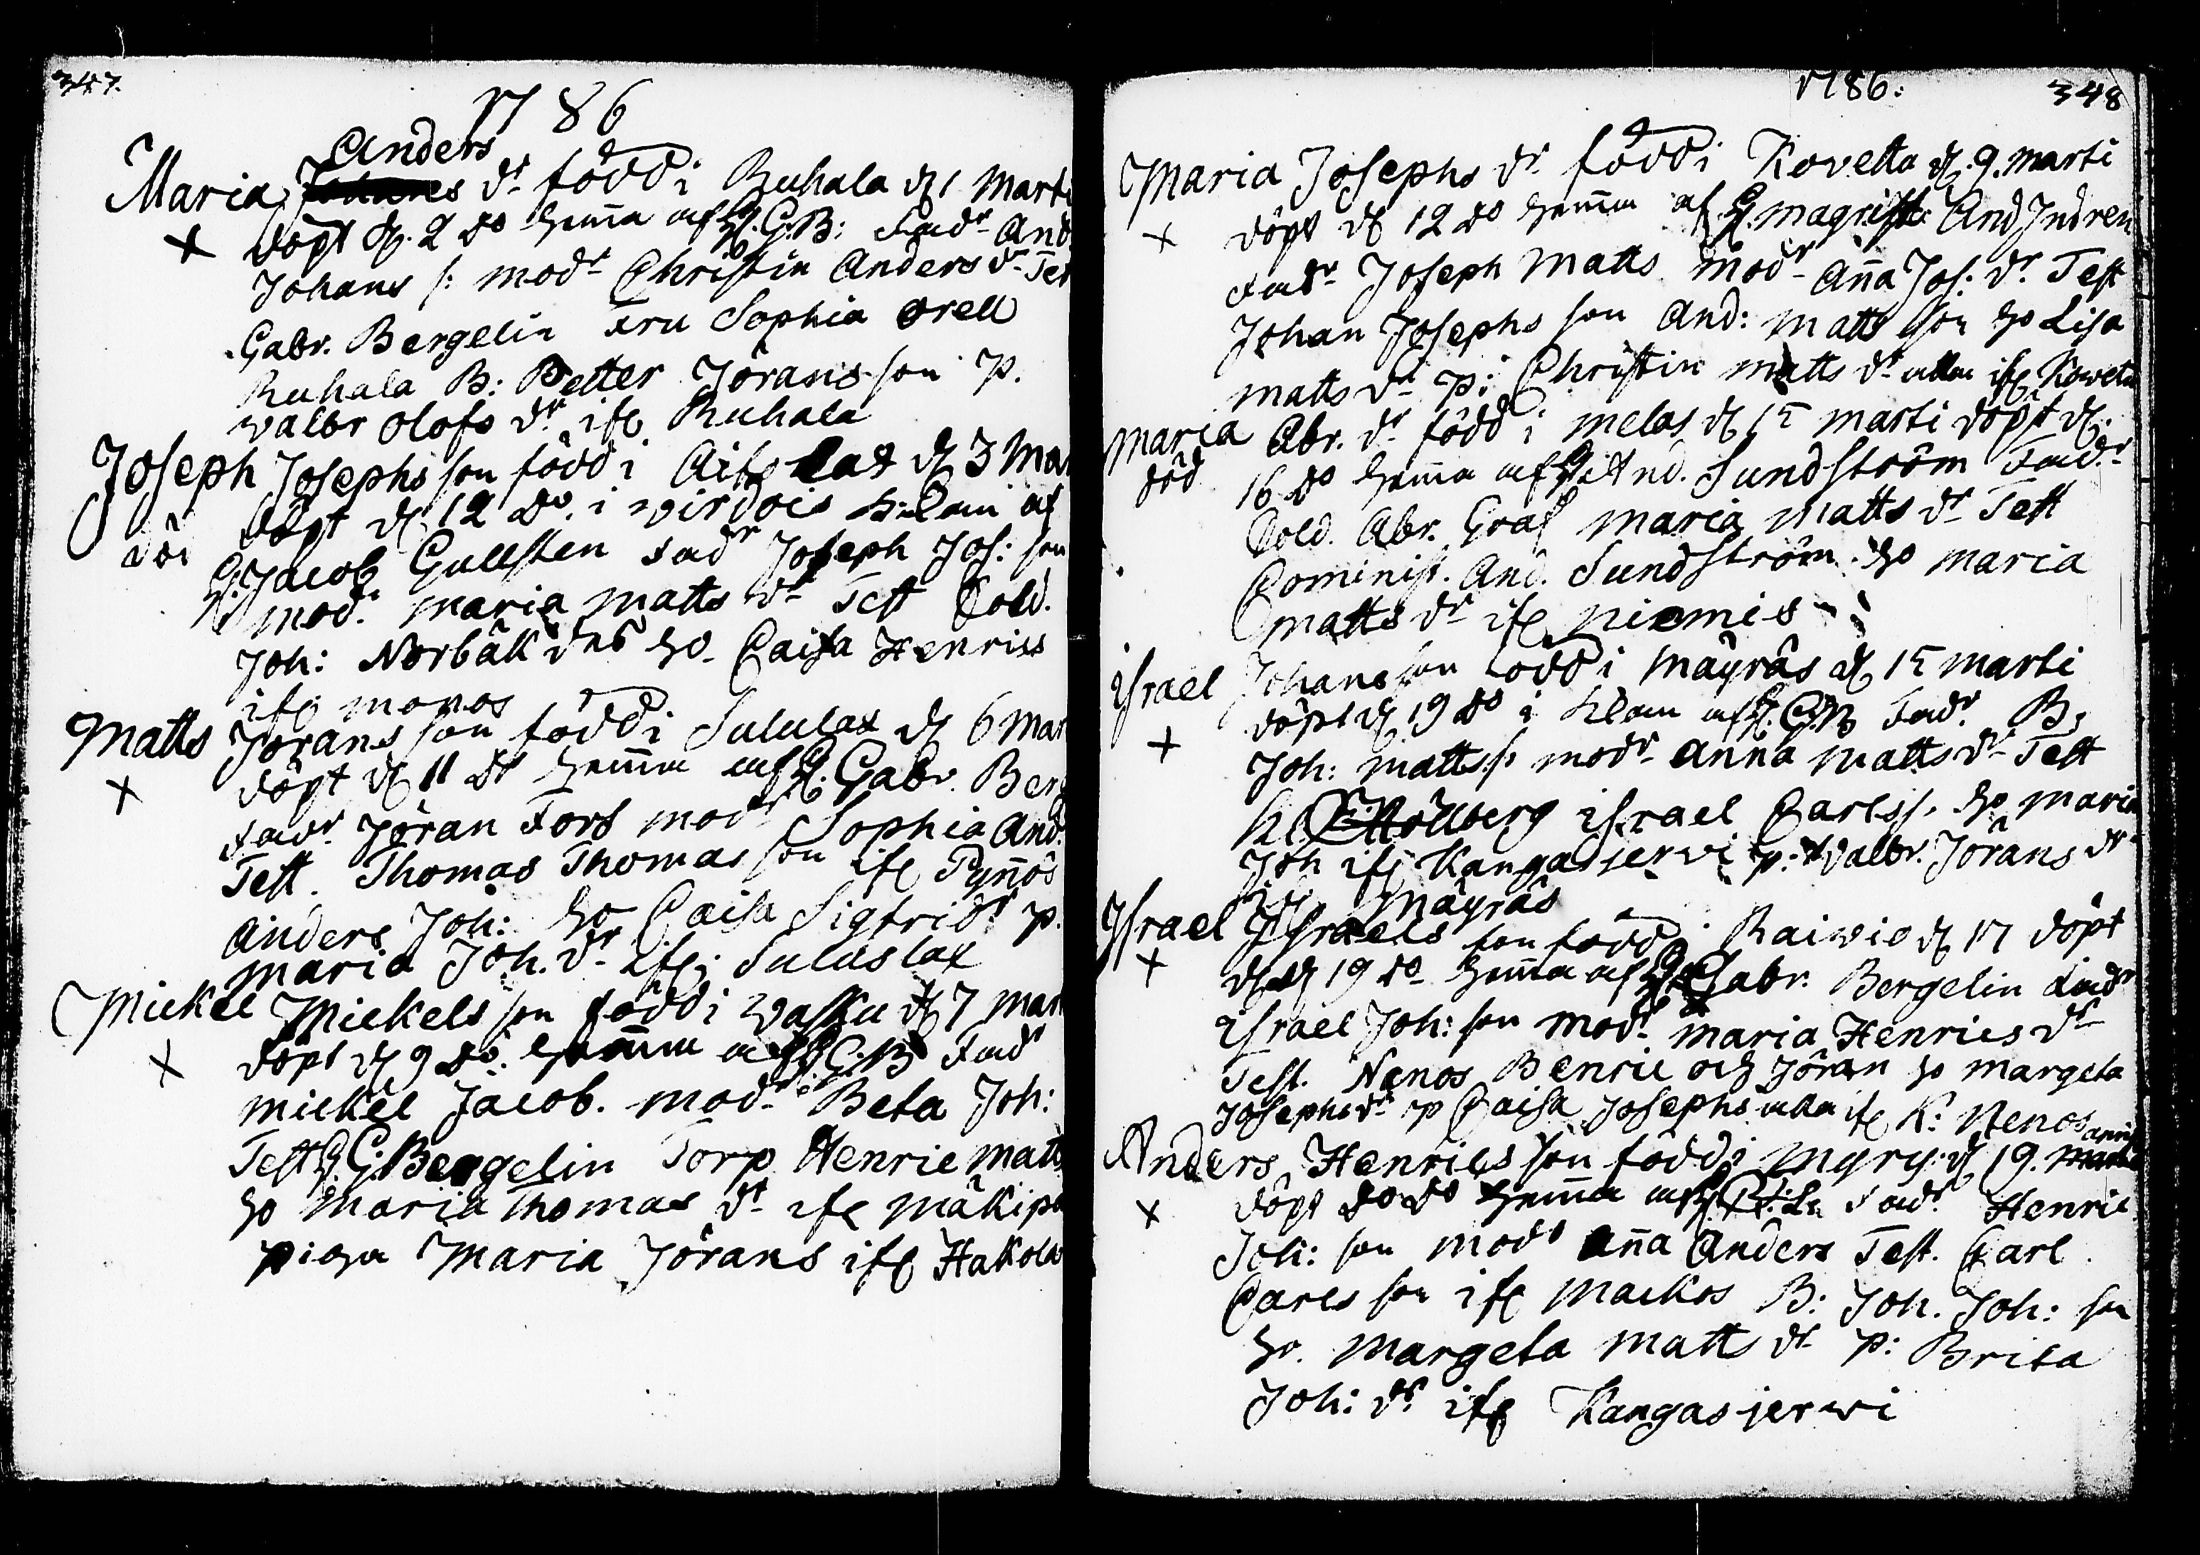 347.
1786
Anders
Maria Johanes dr född i Ruhala d 1 Marti
+ döpt d. 2 do hemma af H. G.B: Fadr And
Johans s: modr Christin Anders dr Test
Gabr. Bergelin Fru Sophia orell
Ruhala B: Petter Jörans son p.
walbr Olofs dr ifr Ruhala
Joseph Josephs son född i d 3 Mar
död döpt d 12 do i wirdois k:lam af
H. Jacob Gullsten Fadr Joseph Jos: son
modr. maria matts dr Test Sold.
Joh: Norbäk ho Caisa Henriss
ifr monos
Matts Jörans son född i Sululax d 6 mar
+ döpt d 11 do hemma af H. Gabr. Berg
Fadr Jöran Fors modr Sophia And.
Test. Thomas Thomas son ifr Pynnös
Anders Joh: ho Caisa Sigfridr p.
maria Joh. dr ifr Suluslax
Mickel Mickels son född i wasku d 7 mar
+ döpt d 9 do hemma af H G:B Fadr
mickel Jacob. modr Beta Joh:
Test H G:Bergelin Torp Henric matts
ho Maria Thomas dr ifr mäkipä
piga Maria Jörans ifr Hakola
1786: 348
Maria Josephs dr född i Kovetta d. 9. marti
+ döpt d 12 do hemma af H. magist And Indren
Fadr Joseph Matts modr Anna Jos: dr Test
Johan Josephs son And: matts son ho Lisa
matts dr p: Christin matts dr alla ifr Koweta
Maria Abr. dr född i melas d 15 marti döpt d.
död 16 do hemma af H. And. Sundström Fadr
Sold. Abr. Graf maria Matts dr Test
Cominist. And. Sundström ho maria
matts dr ifr niemis
Israel Johans son född i Mäyräs d 15 marti
+ döpt d 19 do i klam af H. G:B Fadr. B.
Joh: matts s: modr Anna matts dr Test
israel Carls s. ho maria
Joh ifr Kangasjerwi p: walbr. Jörans dr
ifr mäyräs
Israel Israels son född i Raiwio d 17 döpt
+ d 19 do hemma af H Gabr. Bergelin Fadr
israel Joh: son modr maria Henrics dr
Test. Nanos Benric och Jöran ho margeta
Josephs dr p Caisa Josephs alla ifr K: Nenos
Anders Henrics son född i myry: d 19. marti
+ döpt do do hemma af H. Fadr Henric
Joh: son modr Anna Anders Test. Carl
Carls son ifr Mackos B: Joh. Joh: son
ho. Margeta matts dr p: Brita
Joh: dr ifr Kangasjerwi